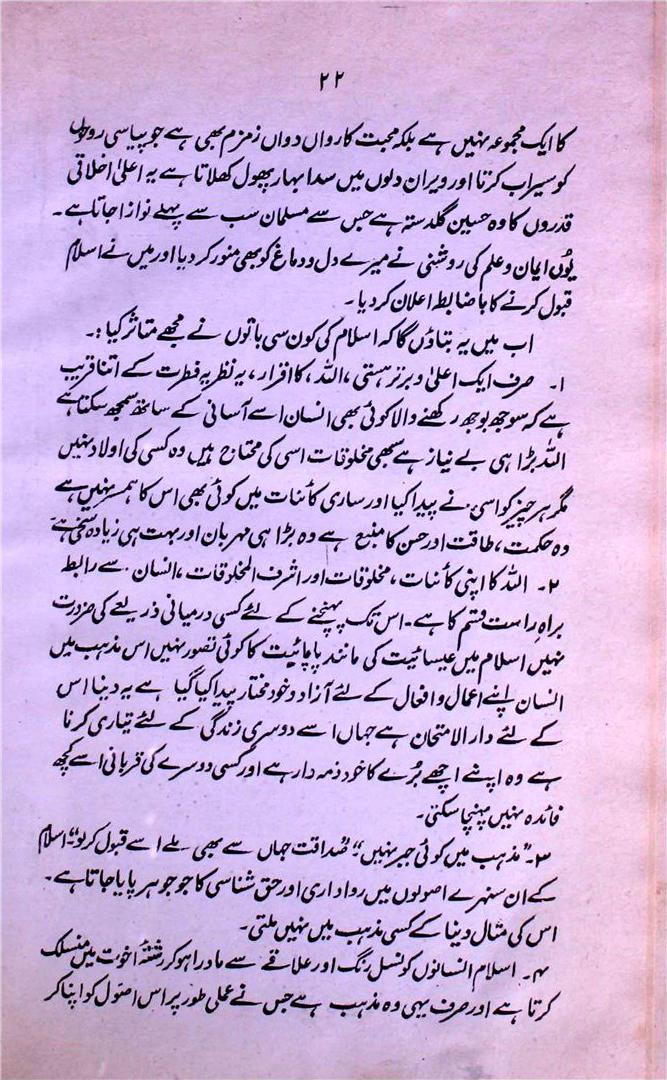 ۲۲
کا ایک مجموعہ نہیں ہے بلکہ محبت کا رواں دواں زمزم بھی ہے جو پیاسی روحوں
کو سیراب کرتا اور ویران دلوں میں سدا بہار پھول کھلاتا ہے یہ اعلیٰ اخلاقی
قدروں کا وہ حسین گلدستہ ہے جس سے مسلمان سب سے پہلے نوازا جاتا ہے۔
یُوں ایمان و علم کی روشنی نے میرے دل و دماغ کو بھی منور کر دیا اور میں نے اسلام
قبول کرنے کا باضابطہ اعلان کر دیا۔
اب میں یہ بتاؤں گا کہ اسلام کی کون سی باتوں نے مجھے متاثر کیا:۔
۱۔ صرف ایک اعلیٰ و برتر ہستی، اللہ، کا اقرار، یہ نظریہ فطرت کے اتنا قریب
ہے کہ سوجھ بوجھ رکھنے والا کوئی بھی انسان اسے آسانی کے ساتھ سمجھ سکتا ہے
اللہ بڑا ہی بے نیاز ہے سبھی مخلوقات اسی کی محتاج ہیں وہ کسی کی اولاد نہیں
مگر ہر چیز کو اسی نے پیدا کیا اور ساری کائنات میں کوئی بھی اس کا ہمسر نہیں ہے
وہ حکمت، طاقت اور حسن کا منبع ہے وہ بڑا ہی مہربان اور بہت ہی زیادہ سخی ہے
۲۔ اللہ کا اپنی کائنات، مخلوقات اور اشرف المخلوقات، انسان سے رابطہ
براہِ راست قسم کا ہے۔ اس تک پہنچنے کے لئے کسی درمیانی ذریعے کی ضرورت
نہیں اسلام میں عیسائیت کی مانند پاپائیت کا کوئی تصور نہیں اس مذہب میں
انسان اپنے اعمال و افعال کے لئے آزاد و خود مختار پیدا کیا گیا ہے یہ دنیا اس
کے لئے دار الامتحان ہے جہاں اسے دوسری زندگی کے لئے تیاری کرنا
ہے وہ اپنے اچھے بُرے کا خود ذمہ دار ہے اور کسی دوسرے کی قربانی اسے کچھ
فائدہ نہیں پہنچا سکتی۔
۳۔ "مذہب میں کوئی جبر نہیں"، "صداقت جہاں سے بھی ملے اسے قبول کر لو"۔ اسلام
کے ان سنہرے اصولوں میں رواداری اور حق شناسی کا جو جوہر پایا جاتا ہے۔
اس کی مثال دنیا کے کسی مذہب میں نہیں ملتی۔
۴۔ اسلام انسانوں کو نسل رنگ اور علاقے سے ماورا ہو کر رشتۂ اخوت میں منسلک
کرتا ہے اور صرف یہی وہ مذہب ہے جس نے عملی طور پر اس اصول کو اپنا کر